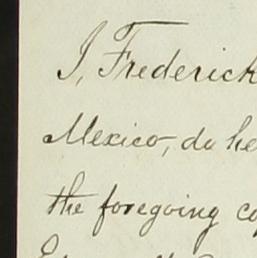 I, Frederick
Mexico, do he
the foregoing co